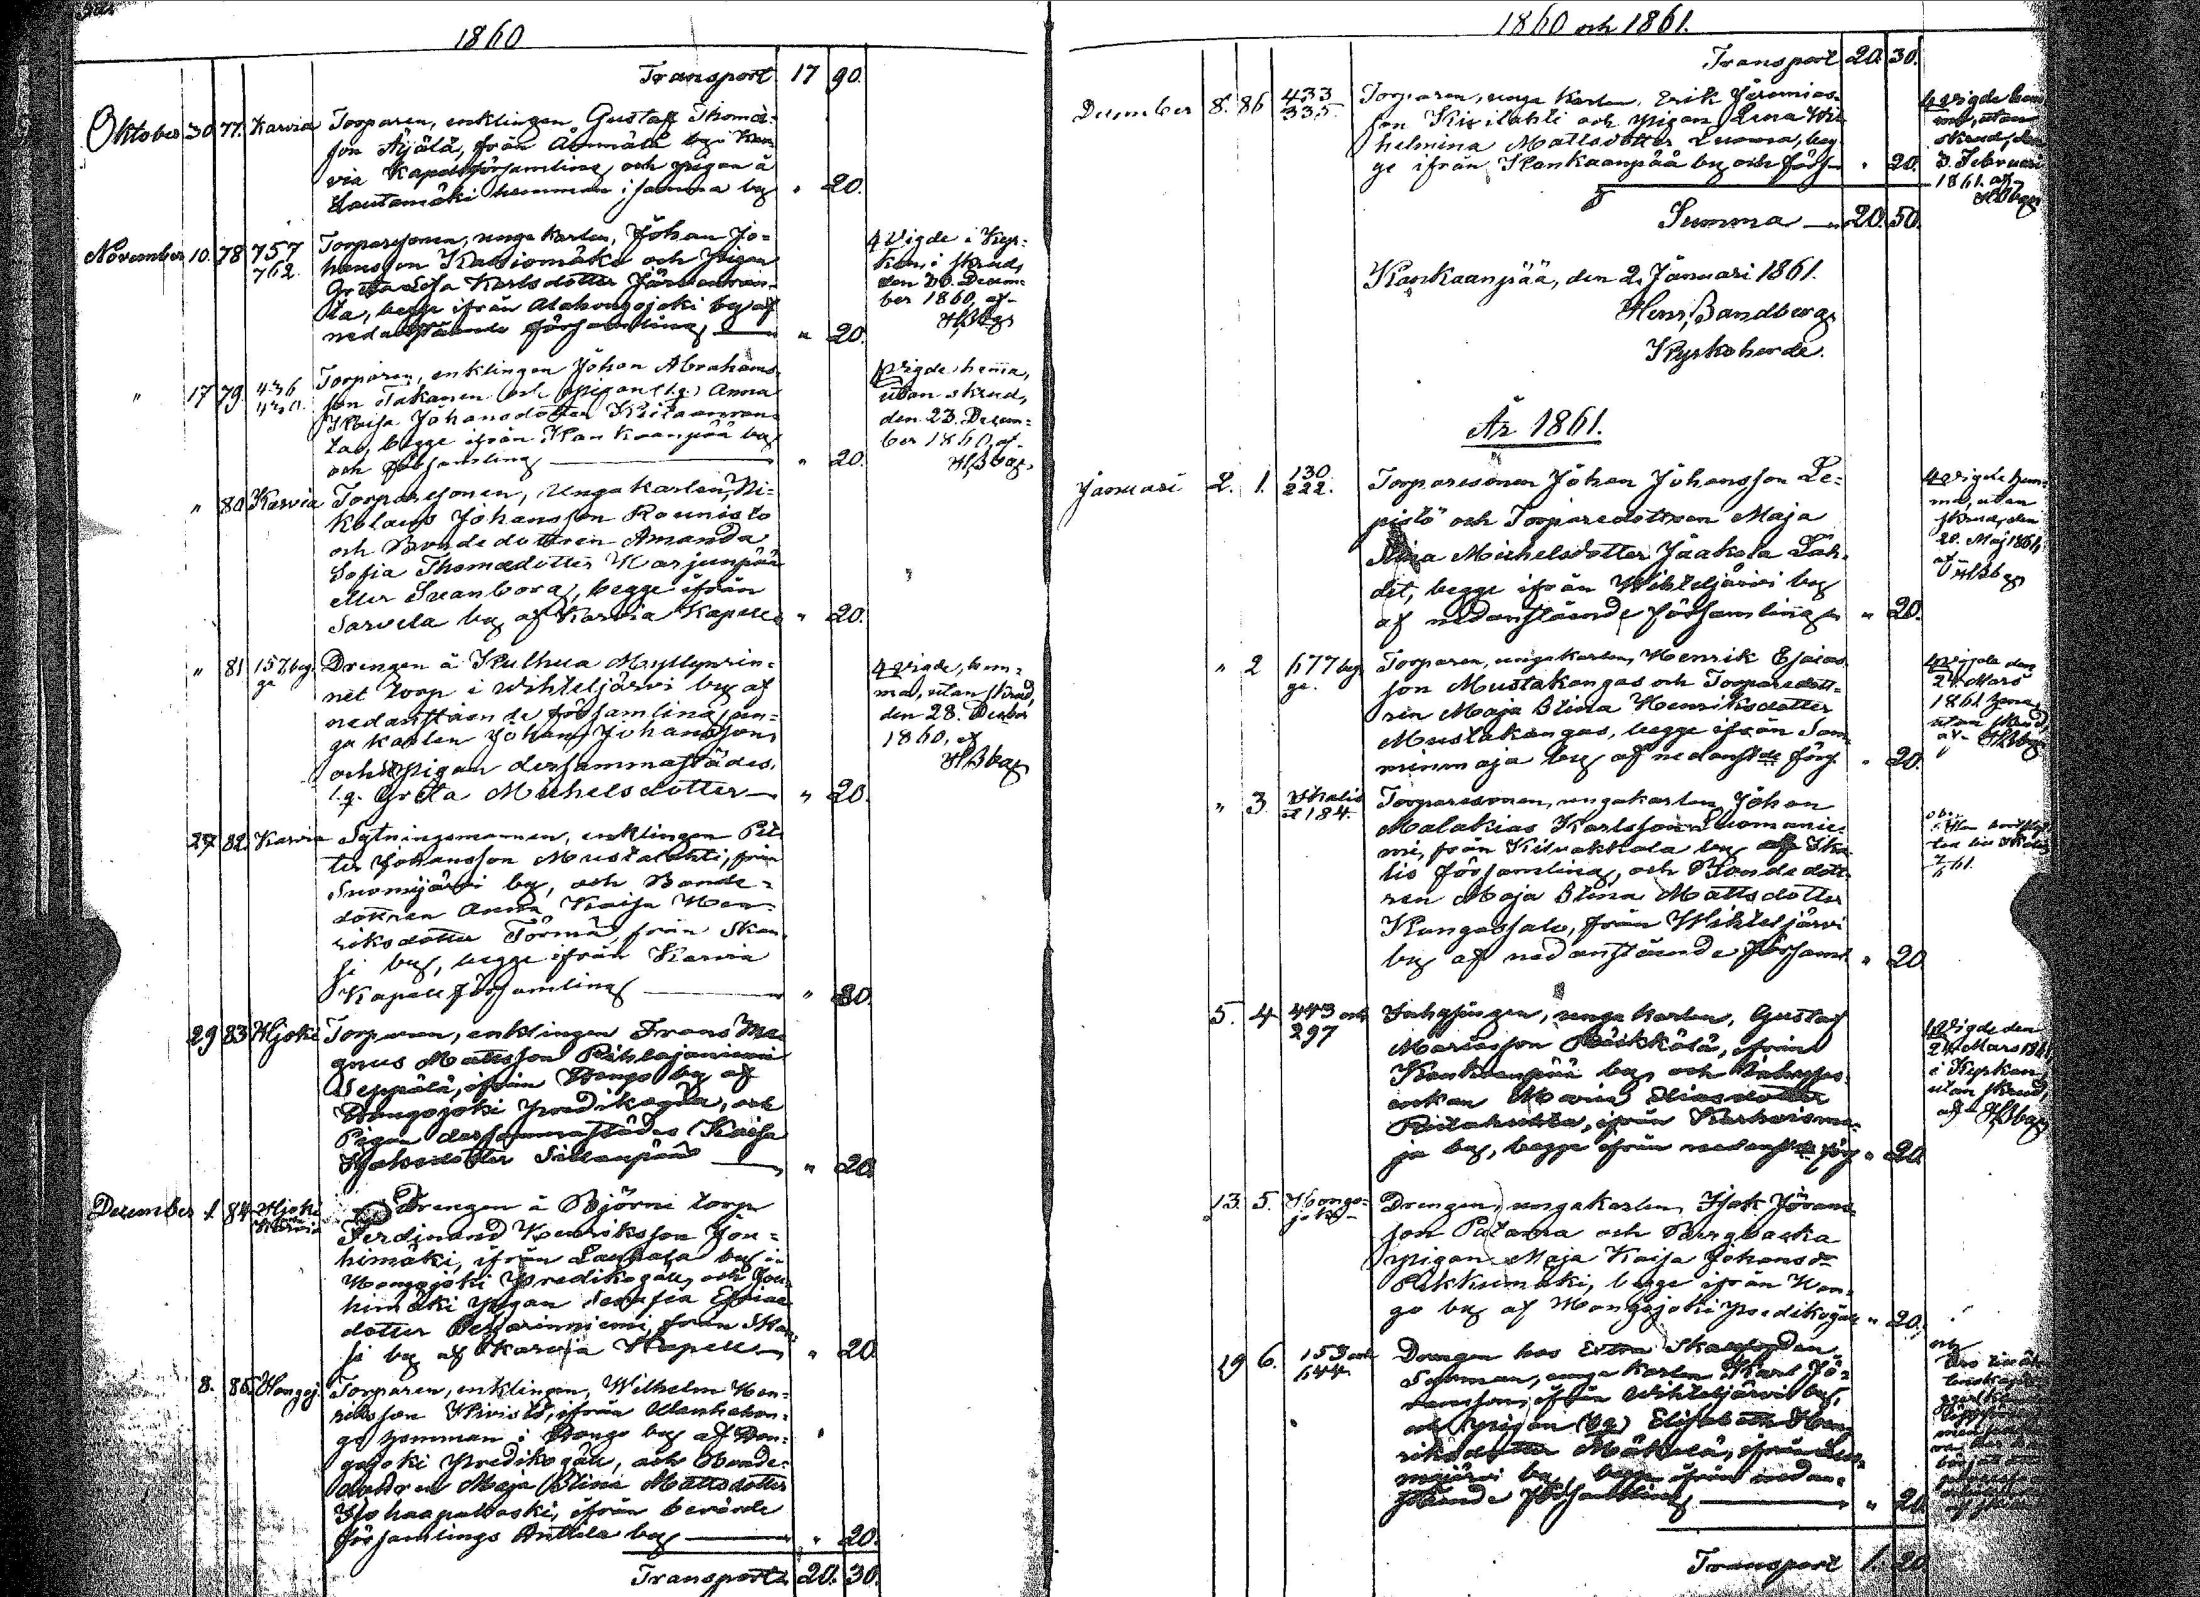 1860
Transport 17 90.
Oktober 30 77. Karvia Torparen, enklingen Gustaf Thomas-
son Äijälä, från Ämmälä by i Kar-
via Kapellförsamling, och pigan å
Lautamäki hemman i samma by " 20.
November 10. 78 757 Torparesonen, unga karlen, Johan Jo-
762. hansson och Pigan
Greta Karlsdotter
ta, begge ifrån Alahongojoki by af
nedanstående församling " 20.
Vigde i Kyr-
kan i skrud,
den 30. Decem-
ber 1860, af
HSbg
" 17 79. 436 Torparen, enklingen Johan Abrahams-
son Takanen och pigan (l.q.) Anna
Kaisa Johansdotter Kiilaanran-
ta, begge ifrån Kankaanpää by
och församling " 20.
Vigde hemma,
utan skrud,
den 23. Decem-
ber 1860, af
HSbg
" 80 Karvia Torparesonen, Ungakarlen, Ni-
kolaus Johansson Raunisto
och Bondedottren Amanda
Sofia Thomædotter Marjunpää
eller Svanborg, begge ifrån
Sarvela by af Karvia Kapell " 20.
" 81 157 beg- Drengen å Kulhua Myllynrin-
ge net torp i Wihteljärvi by af
nedanstående församling, un-
ga karlen Johan Johansson,
och Pigan dersammastädes,
l.q. Greta Michelsdotter " 20.
Vigde, hem-
ma, utan skrud,
den 28. Decbr
1860, af
HSbg
27 82. Karvia Sytningsmannen, enklingen Pet-
ter Johansson Mustalahti, från
Suomijärvi by, och Bonde-
dottren Anna Kaisa Hen-
riksdotter Törmä, från Kan-
si by, begge ifrån Karvia
Kapellförsamling " 20.
29 83 Hjoki Torparen, enklingen Frans Ma-
gnus Mattsson Pihlajaniemi
Seppälä, ifrån Hongo by af
Hongojoki Predikogäll, och
Pigan dersammastädes Kaisa
Isaksdotter Sillanpää " 20.
December 1. 84 Hjoki Drengen å Björni torp
Karvia Ferdinand Henriksson Jou-
himäki, ifrån Lauhala by i
Hongojoki Predikogäll, och Jou-
himäki pigan Serafia Esaias
dotter Pesärinniemi, från Kan-
si by af Karvia Kapell " 20
8. 85. Hongoj. Torparen, enklingen, Wilhelm Hen-
riksson Kivistö, ifrån Wanhahon-
go hemman i Hongo by af Hon-
gojoki Predikogäll, och Bonde-
dottren Maja Stina Mattsdotter
Isohaapakoski, ifrån berörde
församlings Anttila by " 20.
Transport 20. 30.
1860 och 1861.
Transport 20. 30.
December 8. 86 433 Torparen, unga karlen, Erik Jeremias-
335. son Kivilahti och pigan Lena Wil-
helmina Mattsdotter Luoma, beg-
ge ifrån Kankaanpää by och förs " 20.
Vigde hem-
ma, utan
skrud, den
3. Februari
1861. af
HSbg
Summa 20. 50.
Kankaanpää, den 2. Januari 1861.
Henr. Sandberg
Kyrkoherde.
År 1861.
Januari 2. 1. 130 Torparesonen Johan Johansson Le-
222. pistö och Torparedottren Maja
Stina Michelsdotter Jaakola Lah-
det, begge ifrån Wihteljärvi by
af nedanstående församling " 20.
Vigde hem-
ma, utan
skrud, den
20. Maj 1861,
af HSbg
" 2 677 beg- Torparen, ungakarlen, Henrik Esaias-
ge. son Mustakangas och Torparedott-
ren Maja Stina Henriksdotter
Mustakangas, begge ifrån Som-
minmaja by af nedanstde förs. " 20.
Vigde den
24. Mars
1861 hema,
utan skrud,
af HSbg
" 3 Ikalis Torparesonen, ungakarlen, Johan
184. Malakias Karlsson Luomanie-
mi, från Kilvakkala by af Ika-
lis församling, och Bondedott-
ren Maja Stina Mattsdotter
Kangassalo, från Wihteljärvi
by af nedanstående församl. " 20
5. 4 443 och Inhysingen, unga karlen, Gustaf
297 Mariasson ifrån
Kankaanpää by, och
enkan Maria Eliasdotter
ifrån Karhoisma-
ja by, begge ifrån nedanstde förs " 20.
Vigde den
24. Mars 1861,
i Kyrkan,
utan skrud,
af HSbg
13. 5. Hongo- Drengen, ungakarlen, Isak Göran-
joki son Palama och Bergbacka
pigan Maja Kaisa Johansdr
Pukkumäki, begge ifrån Hon-
go by af Hongojoki Predikogäll " 20.
19 6. 153 och Drengen hos Extra Skogvogden
644 unga karlen Karl Jo-
hansson, ifrån Wihteljärvi by,
och pigan (l.q.) Elisabeth Hen-
riksdotter Mäkelä, ifrån
by, begge ifrån nedan-
stående församling " 20
Transport 1. 20